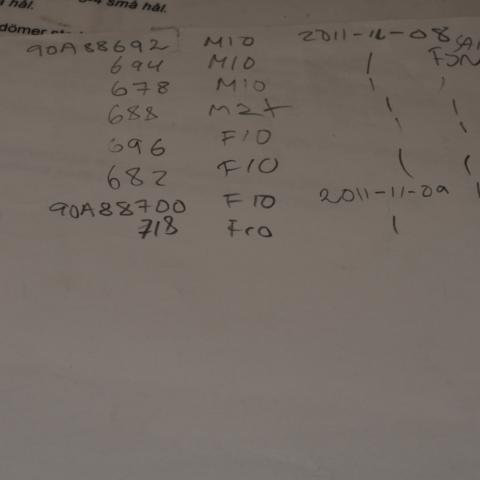 hål. små hål.
dömer
90A88692 M10 2011-11-08
694 M10 |
678 M10 |
688 M2+ | |
696 F10 | |
682 F10 | |
90A88700 F10 2011-11-09 |
718 F10 |